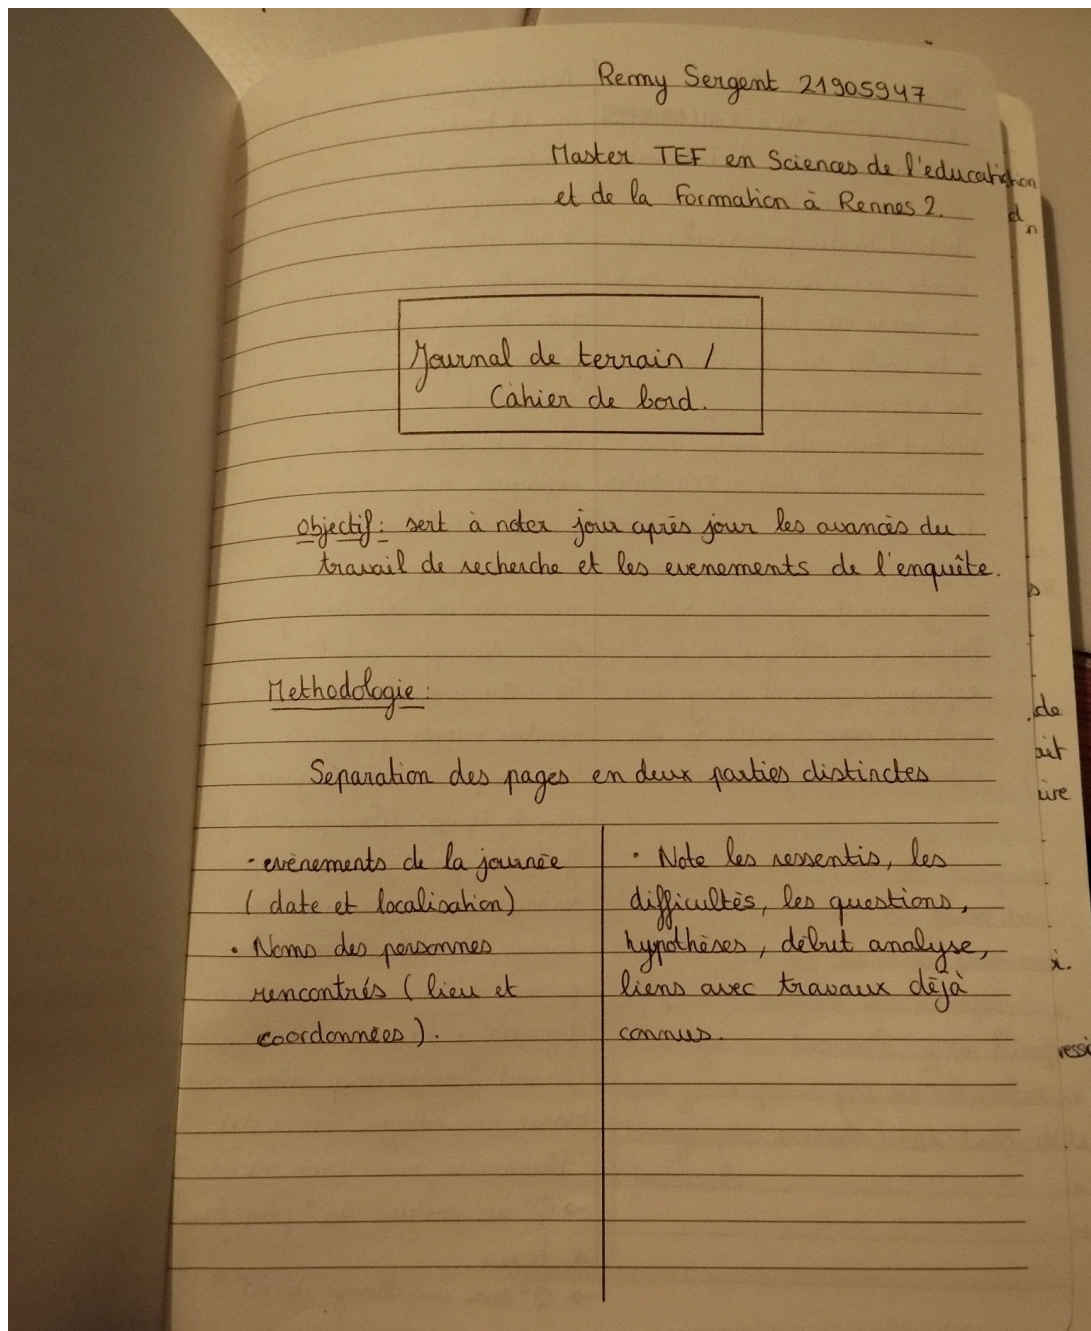 Remy Sergent 21905947
Master TEF en Sciences de l'education
et de la Formation à Rennes 2.
Journal de terrain /
Cahier de bord.
Objectif: sert à noter jour après jour les avancés du
travail de recherche et les evenements de l'enquête.
Methodologie:
Separation des pages en deux parties distinctes
- evènements de la journée
( date et localisation)
• Noms des personnes
rencontrés ( lieu et
coordonnées ).
• Note les ressentis, les
difficultés, les questions,
hypothèses, début analyse,
liens avec travaux déjà
connus.
de